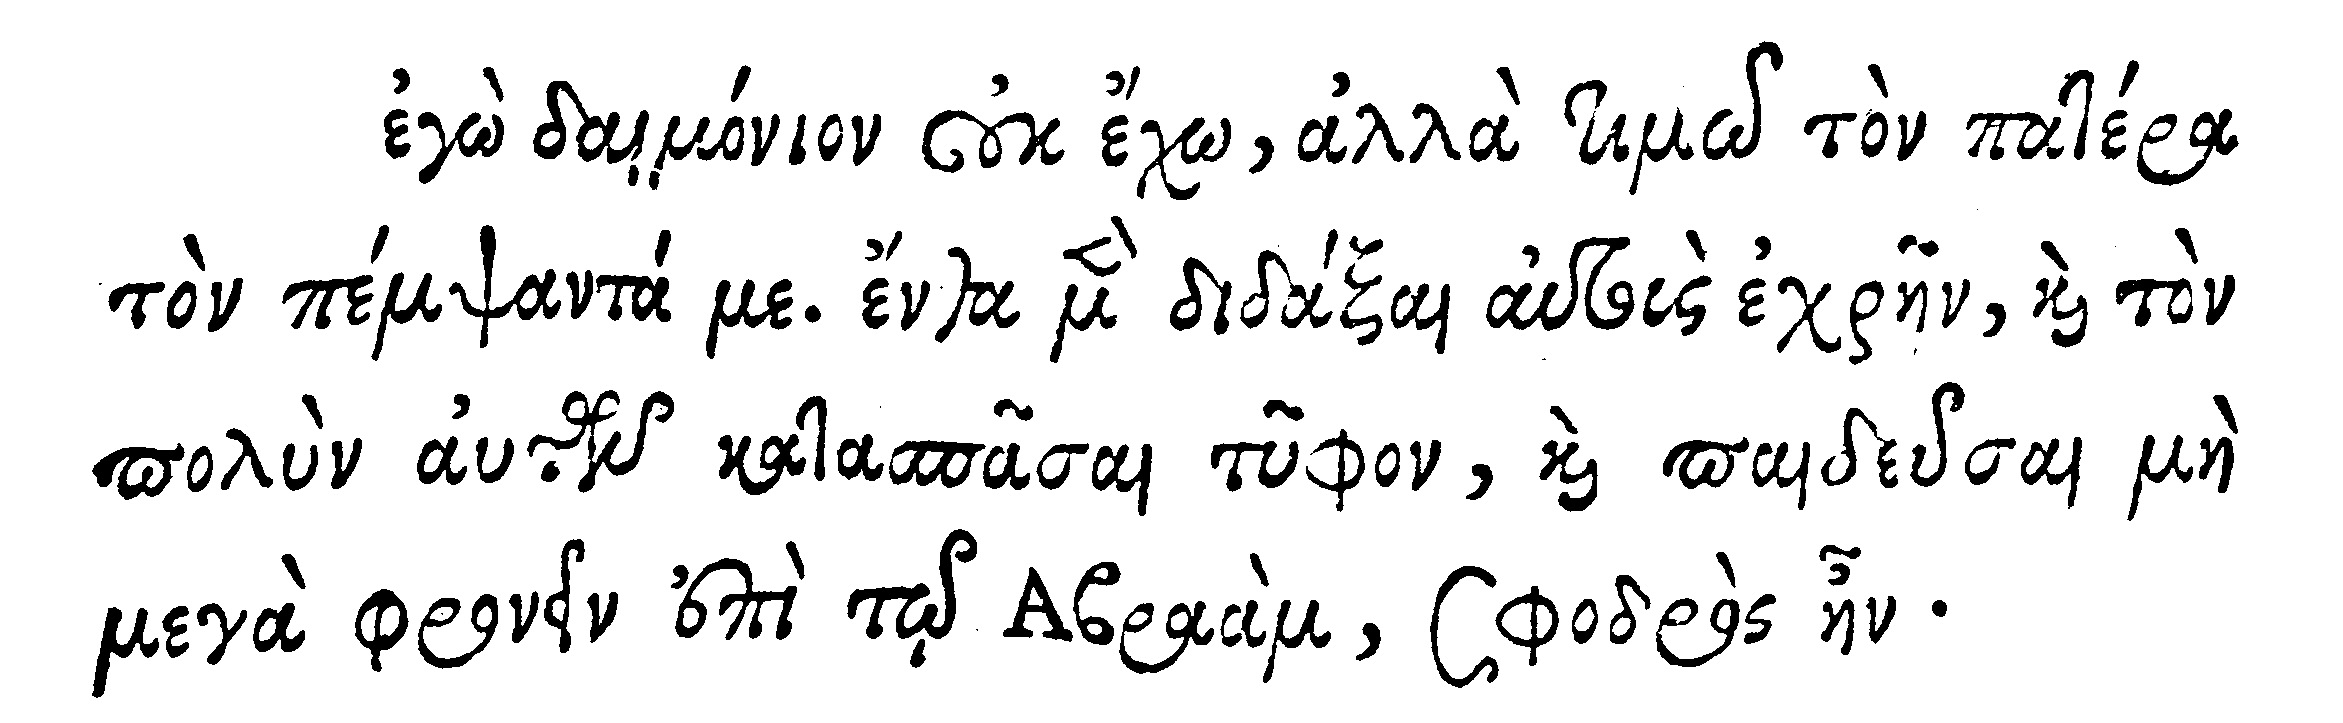 ἐγὼ δαιμόνιον οὐκ ἔχω, ἀλλὰ τιμῶ τὸν πατέρα
τὸν πέμψαντά με. ἔνθα μὲν διδάξαι ἀυτοὺς ἐχρῆν, καὶ τὸν
πολὺν ἀυτῶν κατασπᾶσαι τῦφον, καὶ παιδεῦσαι μὴ
μεγὰ φρονεῖν ἐπὶ τῷ Αβραὰμ, σφοδρὸς ἦν.